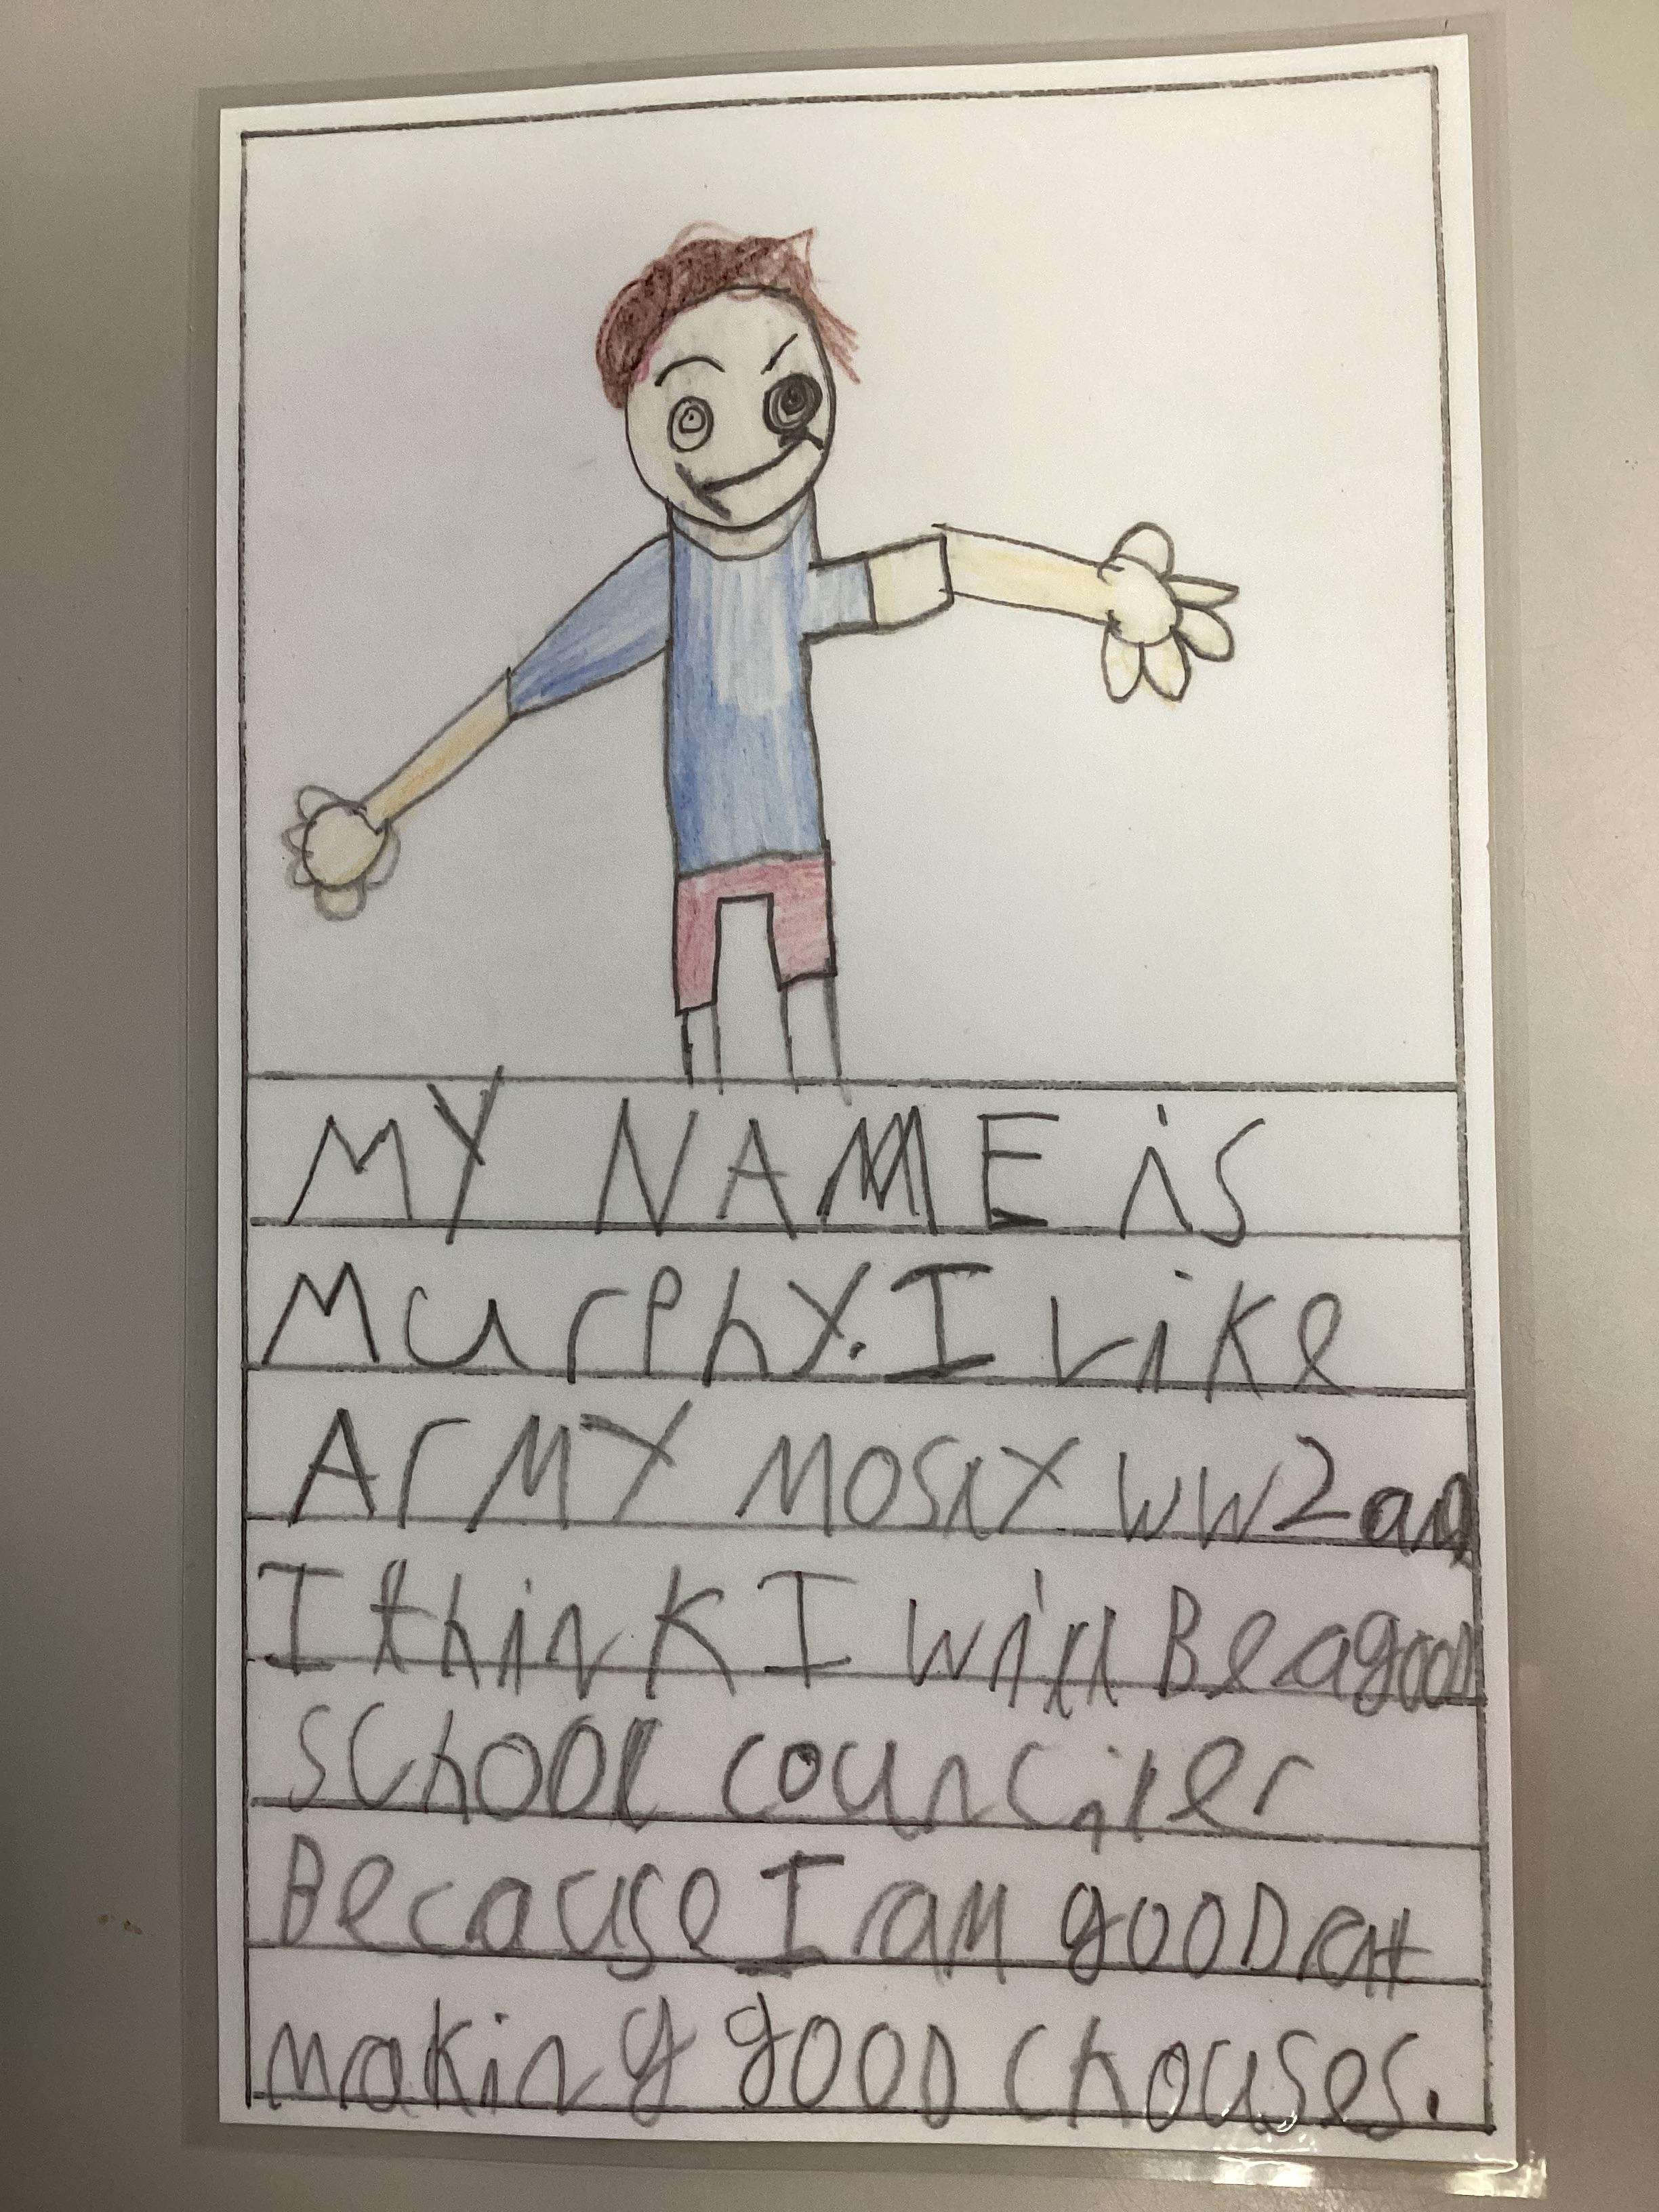 MY NAME is
Murphy. I like
ArMY MOSlY WW2 and
I think I will Be a gooD
school counciler
Because I am gooD at
making gooD chouses.